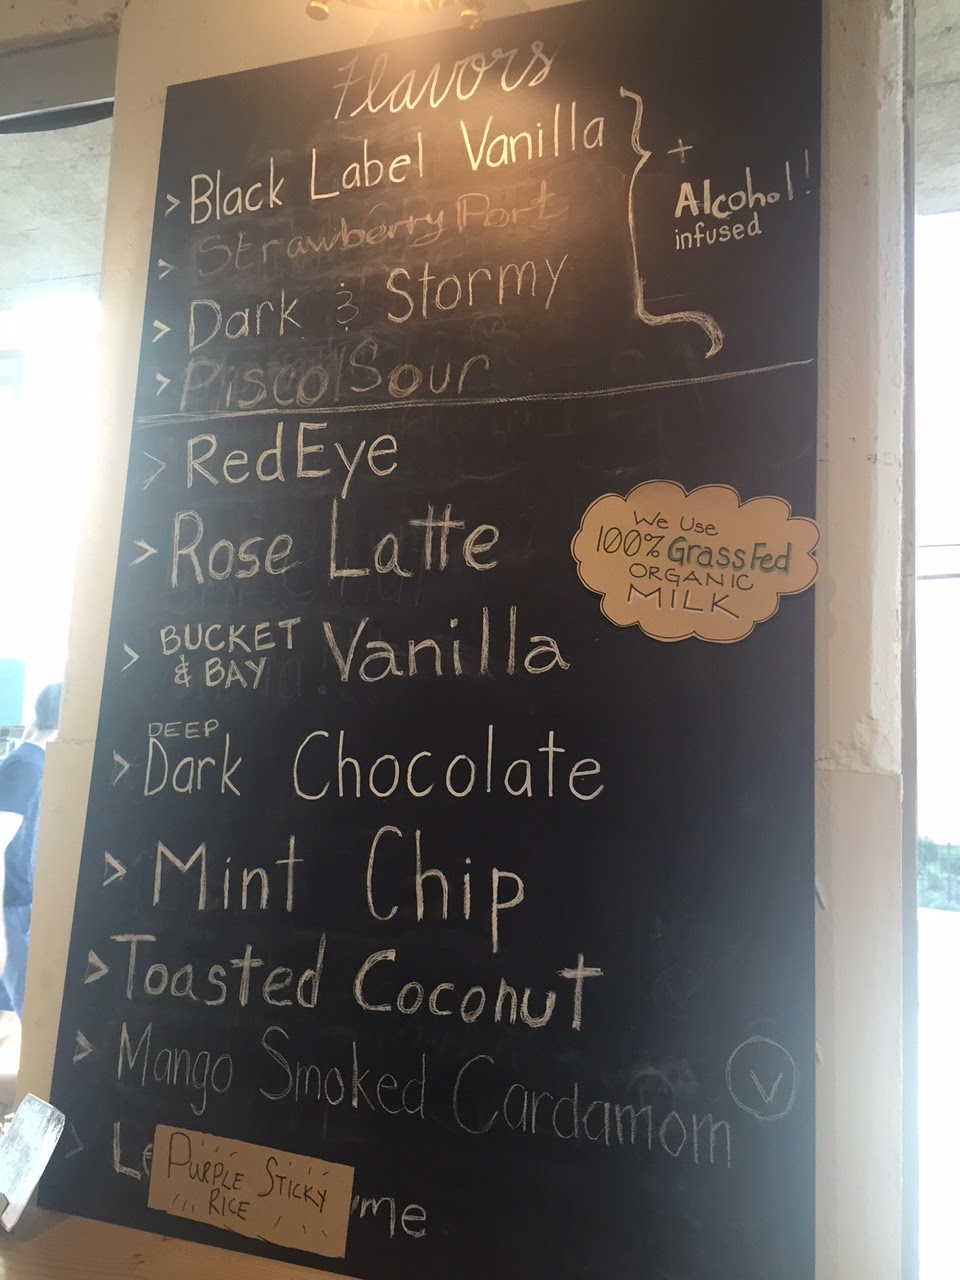 Flavors
> Black Label Vanilla
> Strawberry Port
> Dark & Stormy
> Pisco Sour
+
Alcohol!
infused
> RedEye
> Rose Latte
We Use
100% Grass Fed
ORGANIC
MILK
> BUCKET & BAY Vanilla
> DEEP Dark Chocolate
> Mint Chip
> Toasted Coconut
> Mango Smoked Cardamom V
>
PURPLE STICKY
RICE